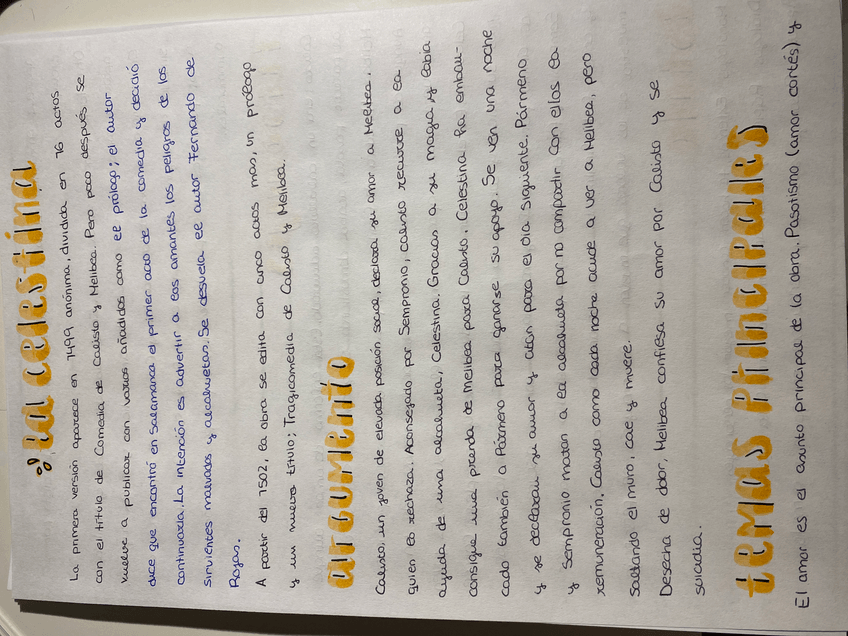 La celestina
La primera versión aparece en 1499 anónima, dividida en 16 actos
con el título de Comedia de Calisto y Melibea. Pero poco después se
vuelve a publicar con varios añadidos como el prólogo; el autor
dice que encontró en Salamanca el primer acto de la comedia y decidió
continuarla. La intención es advertir a los amantes los peligros de los
sirvientes malvados y alcahuetas. Se desvela el autor Fernando de
Rojas.
A partir del 1502, la obra se edita con cinco actos mas, un prólogo
y un nuevo título; Tragicomedia de Calisto y Melibea.
argumento
Calisto, un joven de elevada posición social, declara su amor a Melibea,
quien lo rechaza. Aconsejado por Sempronio, calisto recurre a la
ayuda de una alcahueta, Celestina. Gracias a su magia y labia
consigue una prenda de Melibea para Calisto. Celestina ha embau-
cado también a Pármeno para ganarse su apoyo. Se ven una noche
y se declaran su amor y citan para el dia siguiente. Pármeno
y Sempronio matan a la alcahueta por no compartir con ellos la
remuneración. Calisto como cada noche acude a ver a Melibea, pero
saltando el muro, cae y muere.
Desecha de dolor, Melibea confiesa su amor por Calisto y se
suicidia.
temas principales
El amor es el asunto principal de la obra. Pasotismo (amor cortés) y